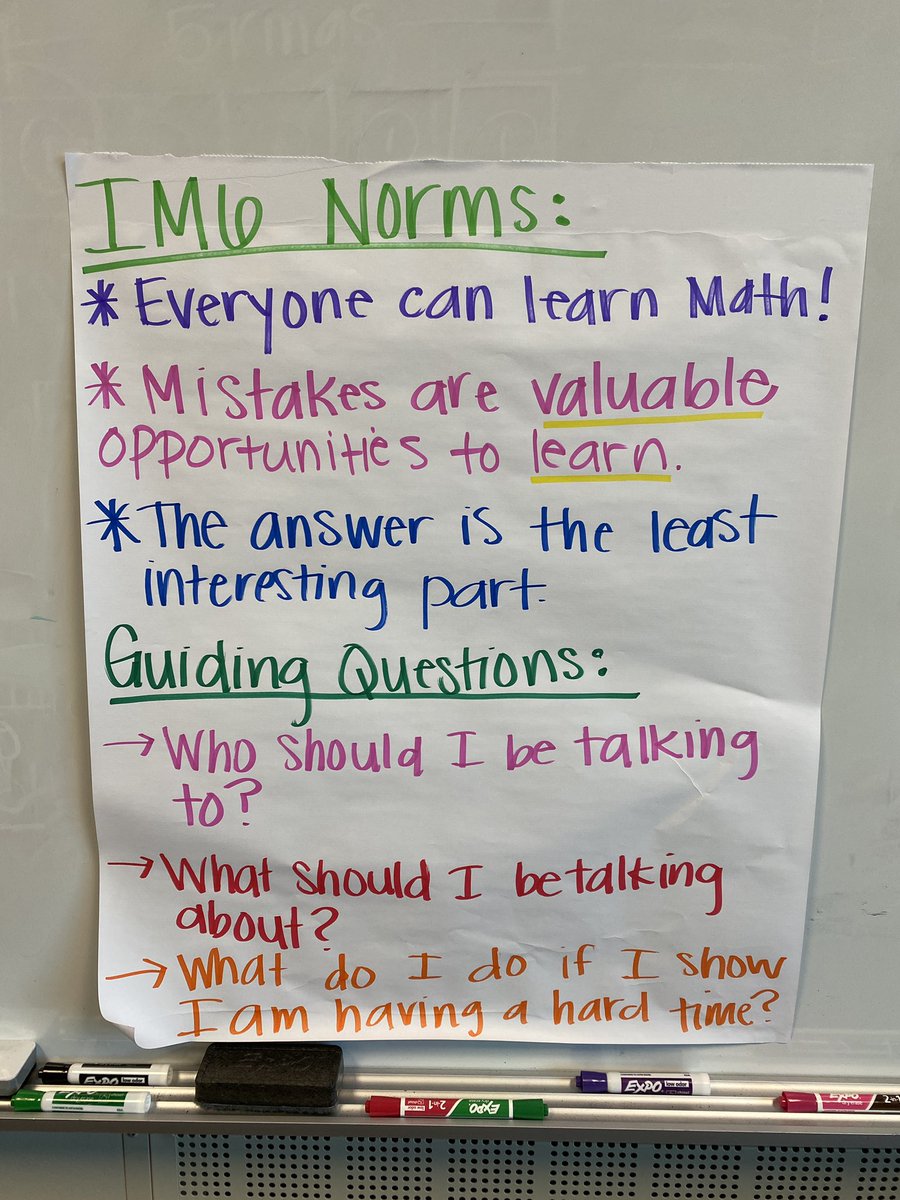 IM6 Norms:
* Everyone can learn Math!
* Mistakes are valuable
opportunities to learn.
* The answer is the least
interesting part.
Guiding Questions:
→ Who should I be talking
to?
→ What should I be talking
about?
→ What do I do if I show
I am having a hard time?
EXPO low odor
EXPO 2-in-1
EXPO low odor